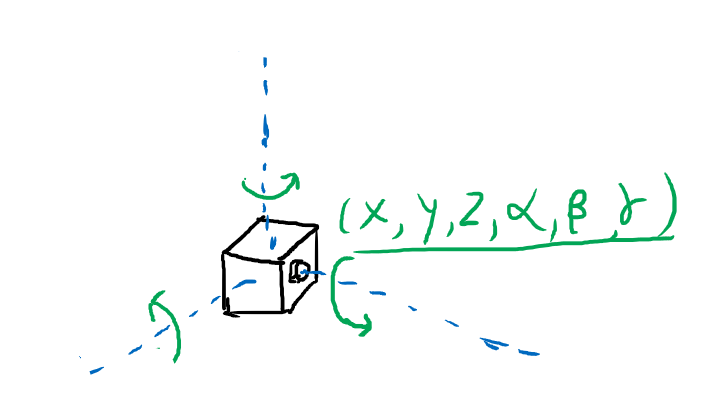 (x, y, z, α, β, γ)